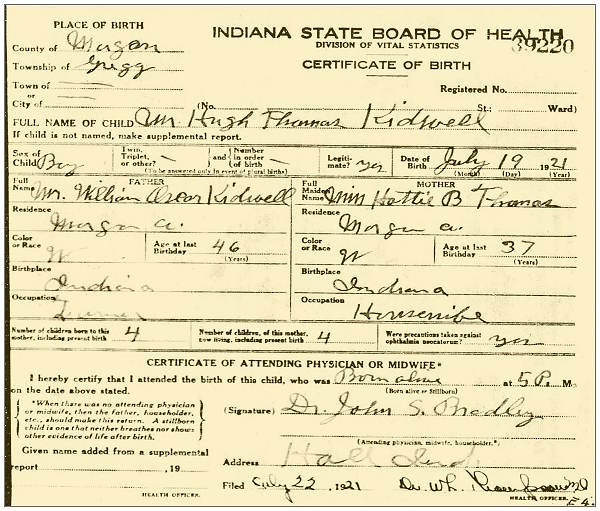 PLACE OF BIRTH
INDIANA STATE BOARD OF HEALTH
DIVISION OF VITAL STATISTICS
39220
CERTIFICATE OF BIRTH
County of Morgan
Township of Gregg
Town of
or
City of
Registered No.
(No. St.; Ward)
FULL NAME OF CHILD Mr. Hugh Thomas Kidwell
If child is not named, make supplemental report.
Sex of Child Boy
Twin, Triplet, or other?
and
Number in order of birth
(To be answered only in event of plural births)
Legitimate? yes
Date of Birth July 19 1921
(Month) (Day) (Year)
FATHER
Full Name Mr. William Oscar Kidwell
MOTHER
Full Maiden Name Miss Hattie B Thomas
Residence
Morgan Co.
Residence
Morgan Co.
Color or Race W
Age at last Birthday 46
(Years)
Color or Race W
Age at last Birthday 37
(Years)
Birthplace
Indiana
Birthplace
Indiana
Occupation
Farmer
Occupation
Housewife
Number of children born to this mother, including present birth 4
Number of children, of this mother, now living, including present birth 4
Were precautions taken against ophthalmia neonatorum? yes
CERTIFICATE OF ATTENDING PHYSICIAN OR MIDWIFE*
I hereby certify that I attended the birth of this child, who was Born alive at 5 P. M.
(Born alive or Stillborn)
on the date above stated.
*When there was no attending physician
or midwife, then the father, householder,
etc., should make this return. A stillborn
child is one that neither breathes nor shows
other evidence of life after birth.
(Signature) Dr. John S. Bradley
(Attending physician, midwife, householder.*)
Given name added from a supplemental
report , 19
Address Hall Ind
HEALTH OFFICER.
Filed July 22, 1921 Dr. W.H.
HEALTH OFFICER.